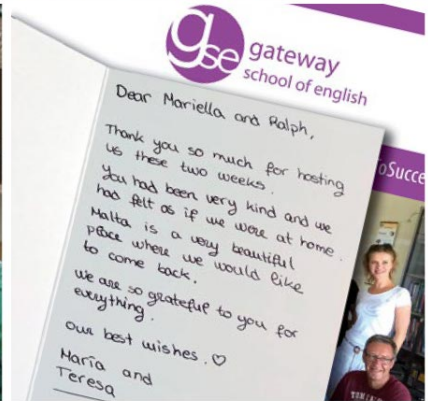 gse
gateway
school of english
Dear Mariella and Ralph,
Thank you so much for hosting
us these two weeks.
You had been very kind and we
had felt as if we were at home.
Malta is a very beautiful
place where we would like
to come back.
We are so grateful to you for
everything.
Our best wishes. ♡
María and
Teresa
oSucce